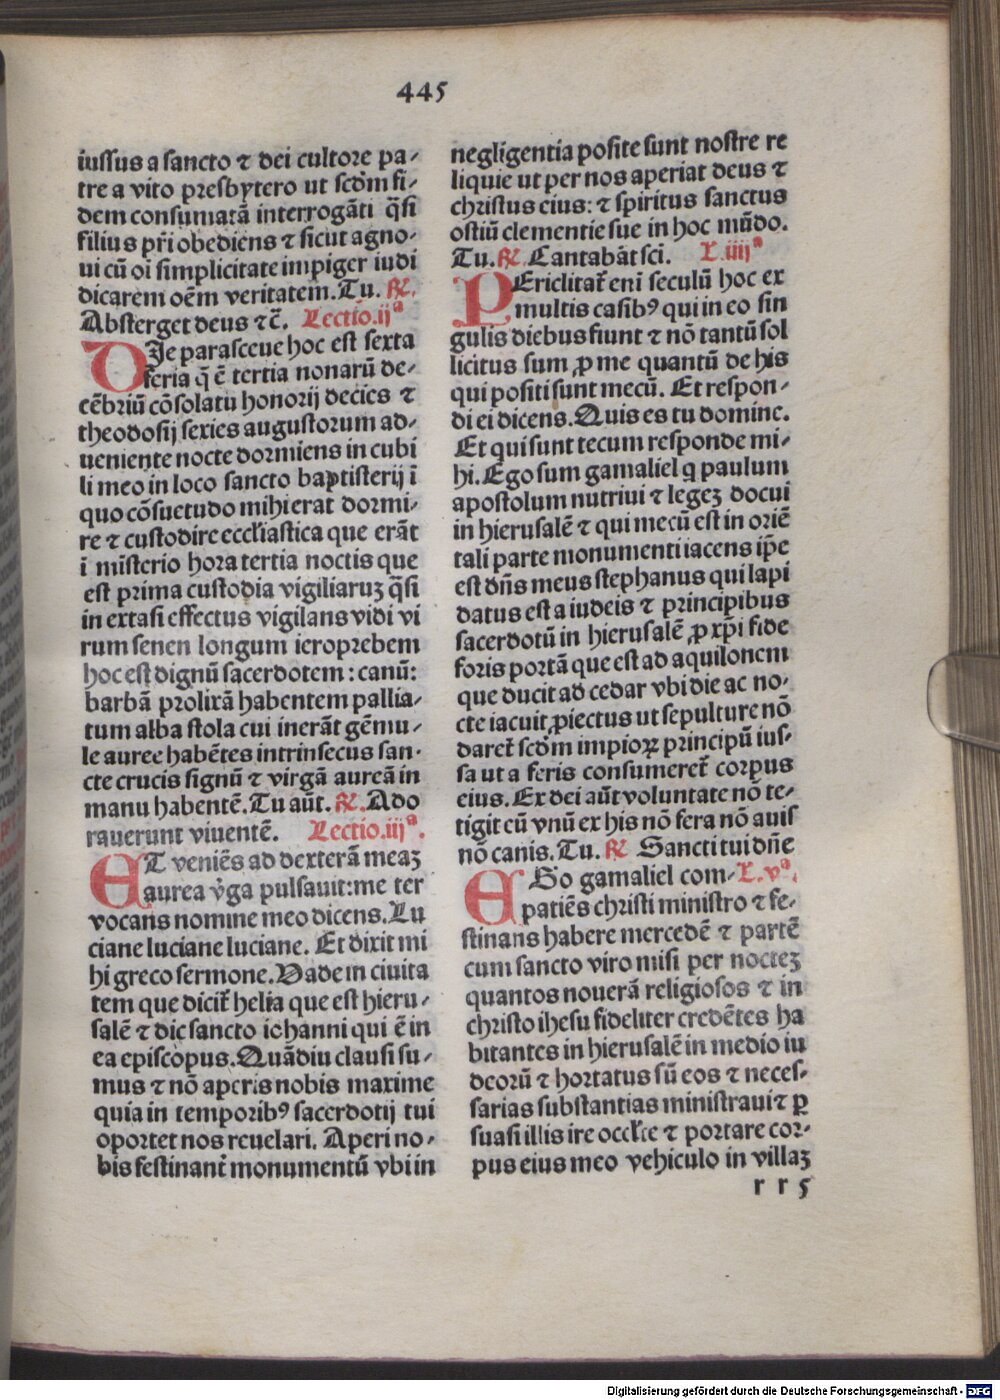 445
iussus a sancto ⁊ dei cultore pa-
tre a vito presbytero ut scd̄m fi-
dem consumatā interrogāti q̄si
filius pr̄i obediens ⁊ sicut agno-
ui cū oī simplicitate impiger iudi
dicarem oēm veritatem. Tu. ℟.
Absterget deus ⁊c̄. Lectio.ijª
DJe parasceue hoc est sexta
feria q̄ ē tertia nonarū de-
cēbriū cōsolatu honorij decies ⁊
theodosij sexies augustorum ad-
ueniente nocte dormiens in cubi
li meo in loco sancto baptisterij ī
quo cōsuetudo mihi erat dormi-
re ⁊ custodire eccl'iastica que erāt
ī mīsterio hora tertia noctis que
est prima custodia vigiliaruꝫ q̄si
in extasi effectus vigilans vidi vi
rum senen longum ieroprebem
hoc est dignū sacerdotem : canū:
barbā prolixā habentem pallia-
tum alba stola cui inerāt gēmu-
le auree habētes intrinsecus san-
cte crucis signū ⁊ virgā aureā in
manu habentē. Tu aūt. ℟. Ado
rauerunt viventē. Lectio.iijª.
ET veniēs ad dexterā meaꝫ
aurea v̄ga pulsauit:me ter
vocans nomine meo dicens. Lu
ciane luciane luciane. Et dixit mi
hi greco sermone. Vade in ciuita
tem que dicit̄ helia que est hieru-
salē ⁊ dic sancto iohanni qui ē in
ea episcopus. Quādiu clausi su-
mus ⁊ nō aperis nobis maxime
quia in temporibꝰ sacerdotij tui
oportet nos reuelari. Aperi no-
bis festinant̄ monumentū vbi in
negligentia posite sunt nostre re
liquie ut per nos aperiat deus ⁊
christus eius: ⁊ spiritus sanctus
ostiū clementie sue in hoc mūdo.
Tu. ℟. Cantabāt sci. L.iiijª
PEriclitat̄ enī seculū hoc ex
multis casibꝰ qui in eo sin
gulis diebus fiunt ⁊ nō tantū sol
licitus sum ꝓ me quantū de his
qui positi sunt mecū. Et respon-
di ei dicens. Quis es tu domine.
Et qui sunt tecum responde mi-
hi. Ego sum gamaliel q paulum
apostolum nutriui ⁊ legeꝫ docui
in hierusalē ⁊ qui mecū est in oriē
tali parte monumenti iacens ip̄e
est dn̄s meus stephanus qui lapi
datus est a iudeis ⁊ principibus
sacerdotū in hierusalē ꝓ xp̄i fide
foris portā que est ad aquilonem
que ducit ad cedar vbi die ac no-
cte iacuit ꝓiectus ut sepulture nō
daret̄ scd̄m impioꝝ principū ius-
sa ut a feris consumeret̄ corpus
eius. Ex dei aūt voluntate nō te-
tigit cū vnū ex his nō fera nō auis
nō canis. Tu. ℟ Sancti tui dn̄e
EGo gamaliel com- L.vª.
patiēs christi ministro ⁊ fe-
stinans habere mercedē ⁊ partē
cum sancto viro misi per nocteꝫ
quantos nouerā religiosos ⁊ in
christo ihesu fideliter credētes ha
bitantes in hierusalē in medio iu
deorū ⁊ hortatus sū eos ⁊ neces-
sarias substantias ministraui ⁊ ꝑ
suasi illis ire occl'te ⁊ portare cor-
pus eius meo vehiculo in villaꝫ
r r 5
Digitalisierung gefördert durch die Deutsche Forschungsgemeinschaft - DFG